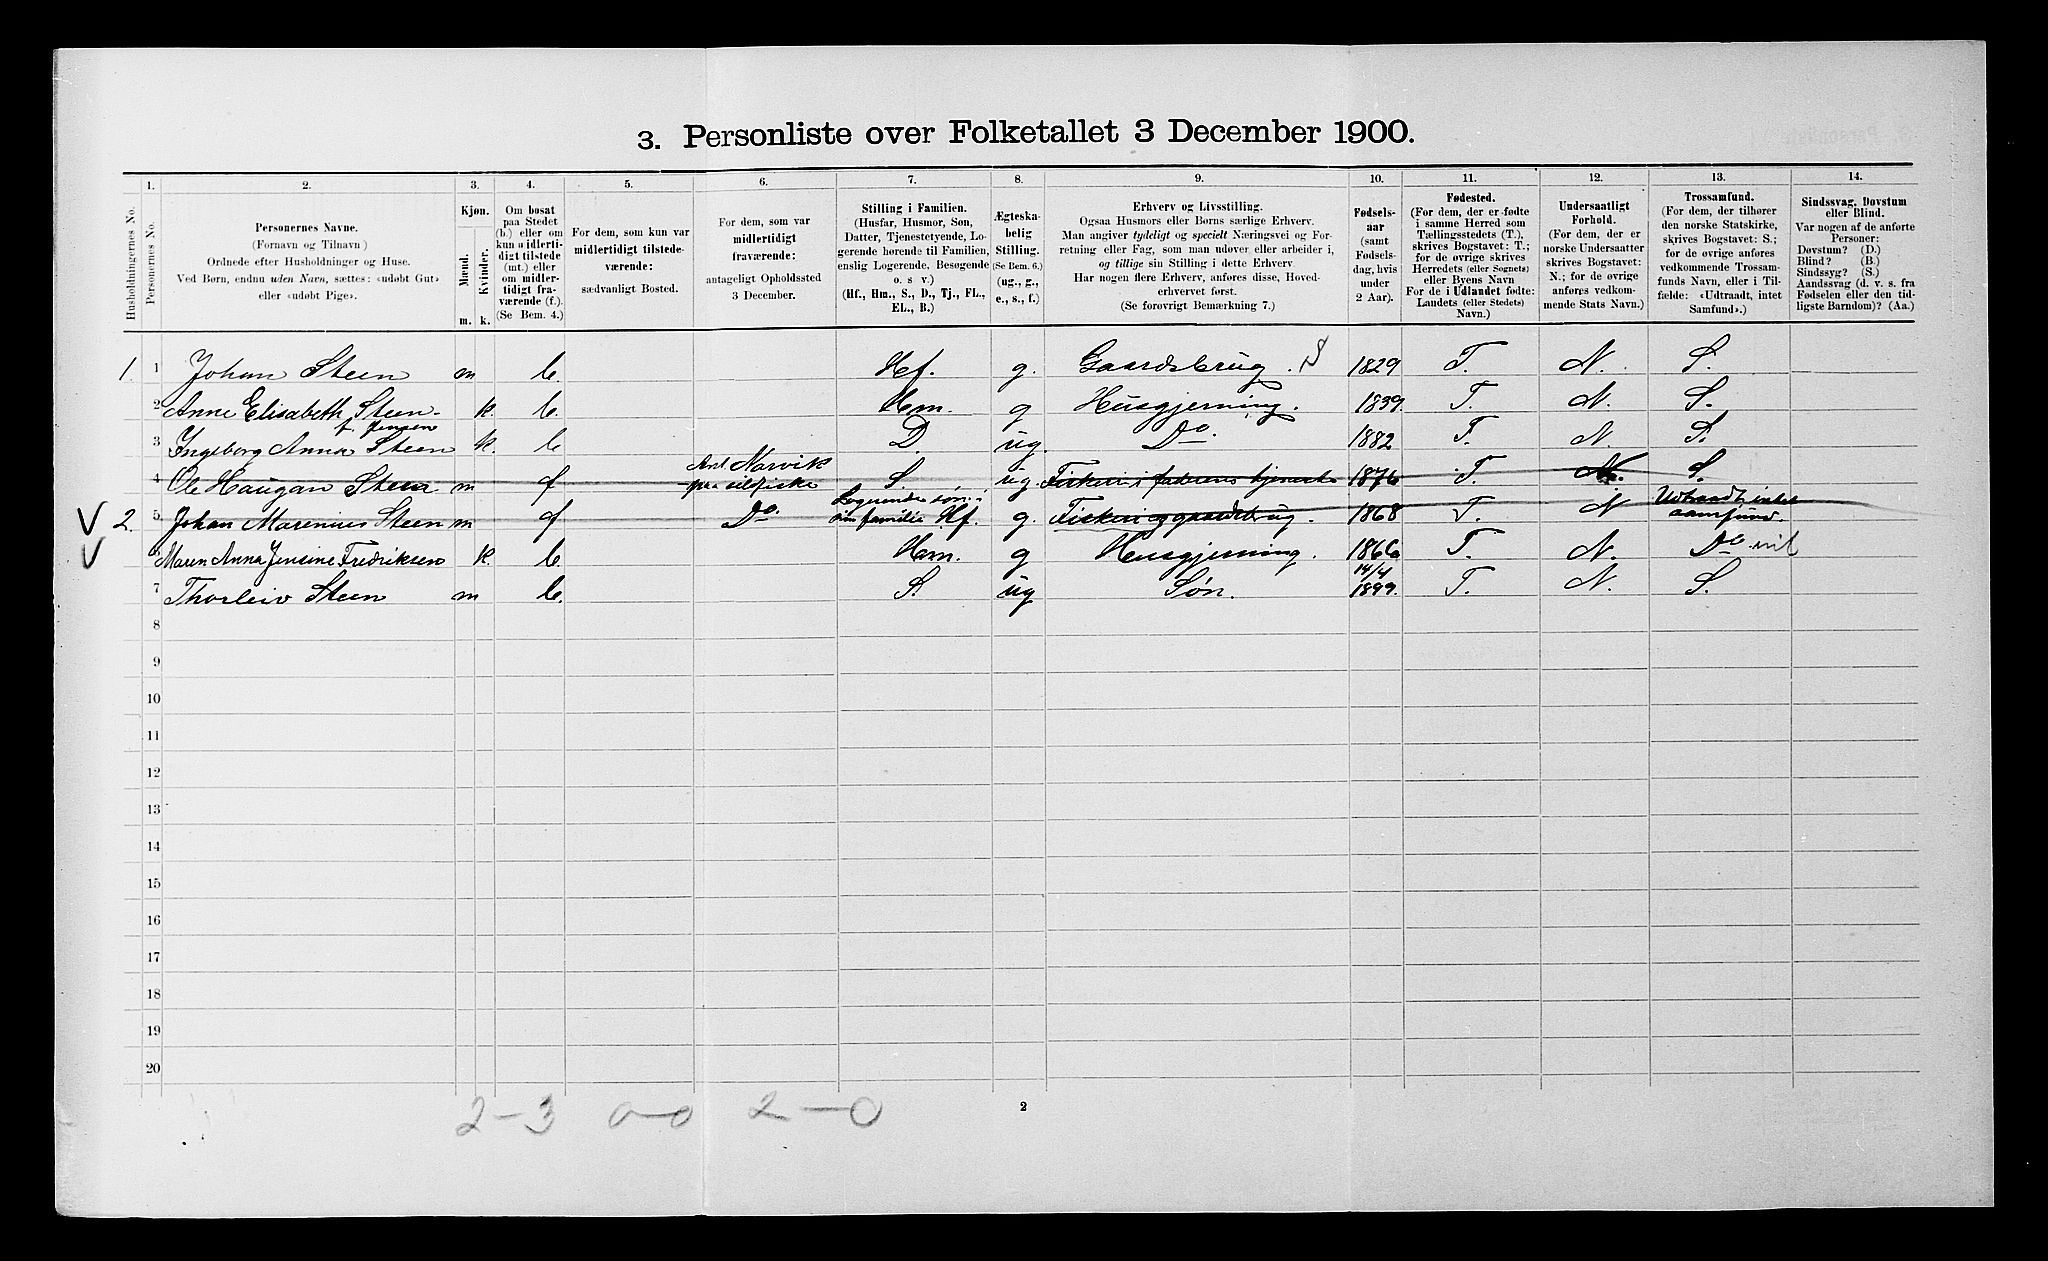 3. Personliste over Folketallet 3 December 1900.
1. 2. 3. 4. 5. 6. 7. 8. 9. 10. 11. 12. 13. 14.
Husholdningernes No.
Personernes No.
Personernes Navne.
(Fornavn og Tilnavn)
Ordnede efter Husholdninger og Huse.
Ved Børn, endnu uden Navn, sættes: «udøbt Gut»
eller «udøbt Pige».
Kjøn.
Mænd.
Kvinder.
m. k.
Om bosat
paa Stedet
(b.) eller om
kun midlerti-
digt tilstede
(mt.) eller
om midler-
tidigt fra-
værende (f.).
(Se Bem. 4.)
For dem, som kun var
midlertidigt tilstede-
værende:
sædvanligt Bosted.
For dem, som var
midlertidigt
fraværende:
antageligt Opholdssted
3 December.
Stilling i Familien.
(Husfar, Husmor, Søn,
Datter, Tjenestetyende, Lo-
gerende hørende til Familien,
enslig Logerende, Besøgende
o. s v.)
(Hf., Hm., S., D., Tj., FL.,
EL., B.)
Ægteska-
belig
Stilling.
(Se Bem. 6.)
(ug., g.,
e., s., f.)
Erhverv og Livsstilling.
Ogsaa Husmors eller Børns særlige Erhverv.
Man angiver tydeligt og specielt Næringsvei og For-
retning eller Fag, som man udøver eller arbeider i,
og tillige sin Stilling i dette Erhverv.
Har nogen flere Erhverv, anføres disse, Hoved-
erhvervet først.
(Se forøvrigt Bemærkning 7.)
Fødsels-
aar
(samt
Fødsels-
dag, hvis
under
2 Aar).
Fødested.
(For dem, der er fødte
i samme Herred som
Tællingsstedets (T.),
skrives Bogstavet: T.;
for de øvrige skrives
Herredets (eller Sognets)
eller Byens Navn
For de i Udlandet fødte:
Landets (eller Stedets)
Navn.)
Undersaatligt
Forhold.
(For dem, der er
norske Undersaatter
skrives Bogstavet:
N.; for de øvrige
anføres vedkom-
mende Stats Navn.)
Trossamfund.
(For dem, der tilhører
den norske Statskirke,
skrives Bogstavet: S.;
for de øvrige anføres
vedkommende Trossam-
funds Navn, eller i Til-
fælde: «Udtraadt, intet
Samfund».)
Sindssvag, Døvstum
eller Blind.
Var nogen af de anførte
Personer:
Døvstum? (D.)
Blind? (B.)
Sindssyg? (S.)
Aandssvag (d. v. s. fra
Fødselen eller den tid-
ligste Barndom)? (Aa.)
1. 1 Johan Steen m b. Hf. g. Gaardsbrug. S 1829 T. N. S.
2 Anne Elisabeth Steen. k. b. Hm. g Husgjerning. 1839. T. N. S.
f. Jensen
3 Ingeborg Anna Steen k. b D. ug. Do. 1882 T. N. S.
4 Ole Haugan Steen m f Ant. Narvik paa sildfiske S. ug. Fiskeri i faderens tjeneste 1876 T. N. S.
V 2. 5 Johan Marenius Steen m f Do. Logerende søn: sin familie Hf. g. Fiskeri og gaardsbrug. 1868 T. N Udtraadt intet samfund.
V 6 Maren Anna Jensine Fredriksen k. b. Hm. g Husgjerning. 1866 T. N. Do
7 Thorleiv Steen m b. S. ug Søn. 14/4 1899. T. N. S.
8
9
10
11
12
13
14
15
16
17
18
19
20
2-3 0-0 2-0
2